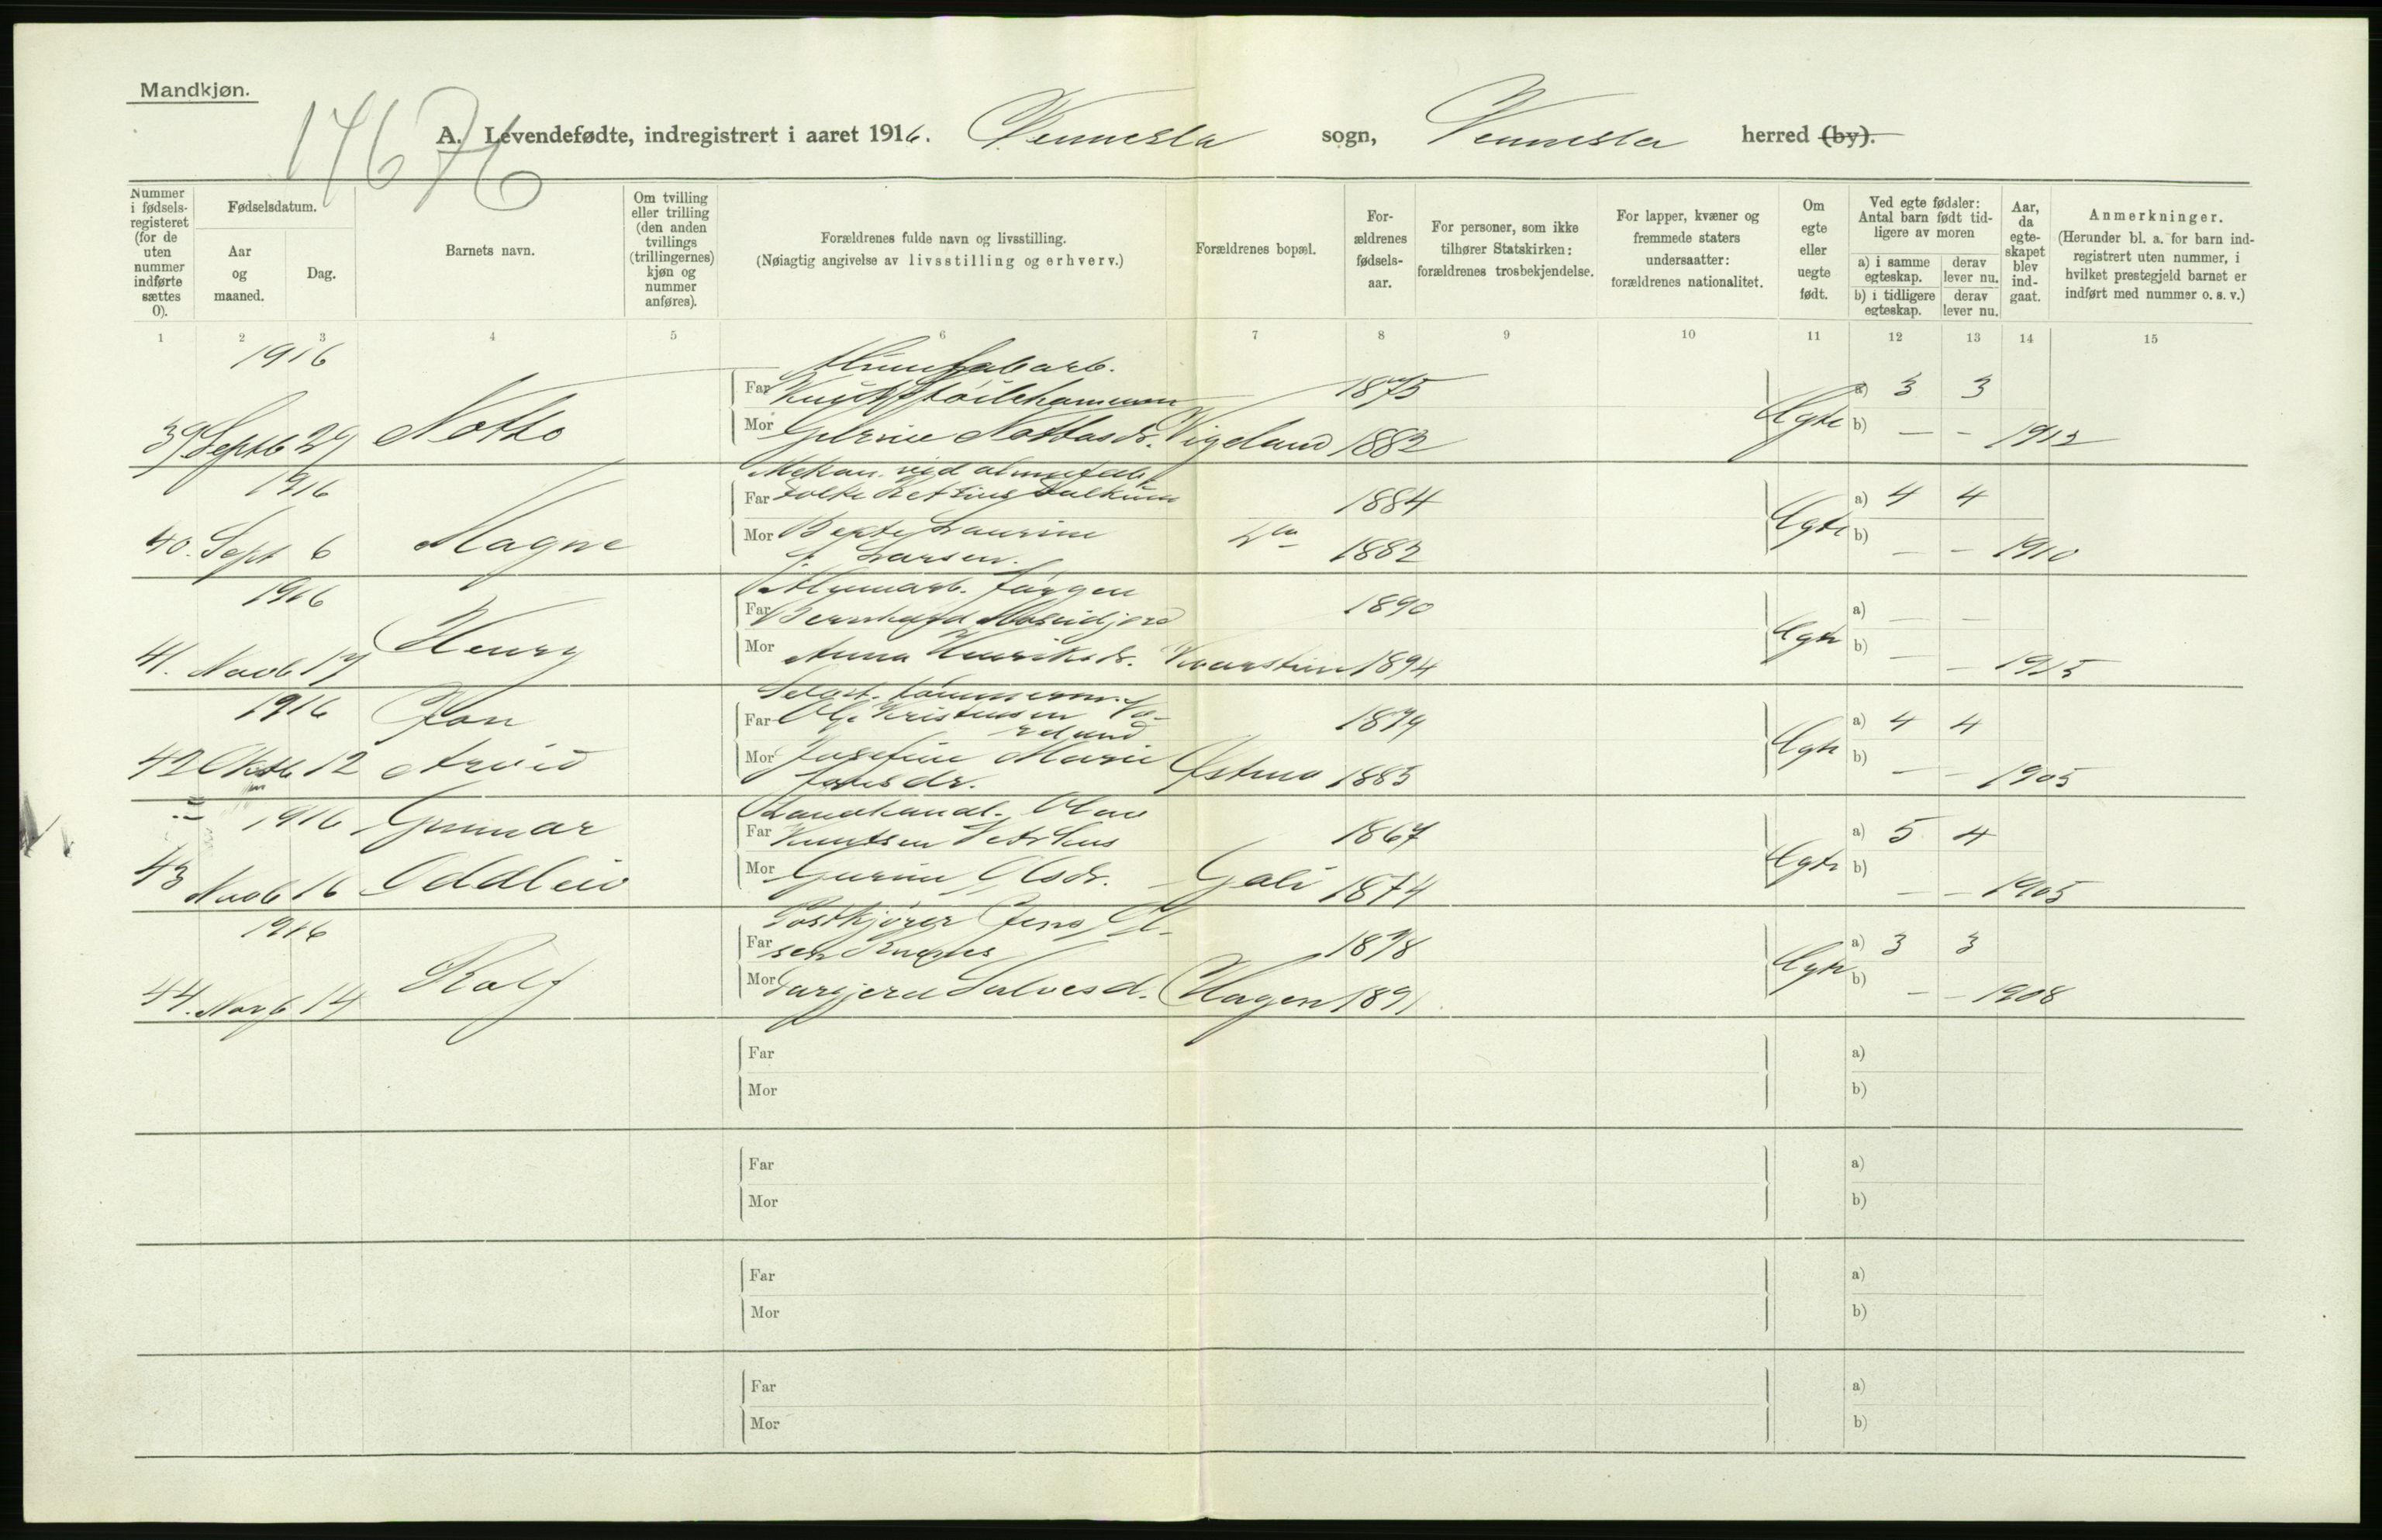 Mandkjøn.
17676
A. Levendefødte, indregistrert i aaret 1916. Vennesla sogn, Vennesla herred (by).
Nummer i fødsels-registeret (for de uten nummer indførte sættes 0).
Fødselsdatum.
Aar og maaned.
Dag.
Barnets navn.
Om tvilling eller trilling (den anden tvillings (trillingernes) kjøn og nummer anføres).
Forældrenes fulde navn og livsstilling.
(Nøiagtig angivelse av livsstilling og erhverv.)
Forældrenes bopæl.
For-ældrenes fødsels-aar.
For personer, som ikke tilhører Statskirken: forældrenes trosbekjendelse.
For lapper, kvæner og fremmede staters undersaatter: forældrenes nationalitet.
Om egte eller uegte født.
Ved egte fødsler: Antal barn født tid-ligere av moren
a) i samme egteskap.
derav lever nu.
b) i tidligere egteskap.
derav lever nu.
Aar, da egte-skapet blev ind-gaat.
Anmerkninger.
(Herunder bl. a. for barn ind-registrert uten nummer, i hvilket prestegjeld barnet er indført med nummer o. s. v.)
1 2 3 4 5 6 7 8 9 10 11 12 13 14 15
1916
Far 1875 a) 3 3
39 Septb 29 Notto Mor Nottosdr. Vigeland 1882 Egte b) — – 1912
1916
Far 1884 a) 4 4
40. Sept 6 Magne Mor Berte Laurine 1882 Egte b) — – 1910
Larsen.
1916 Jørgen
Far Bernhard 1890 a) — —
41. Novb 17 Henry Mor Anna Henriksdr. Kvarstein 1894 Egte b) — – 1915
1916 Jon
Far Ole Kristensen 1879 a) 4 4
42 Oktb 12 Arvid Mor Josefine Marie 1885 Egte b) — – 1905
1916 Gunnar Landhandl. Olav
Far Knutsen Vetrhus 1867 a) 5 4
43 Novb 16 Oddleiv Mor Gurine Olsdr. 1874 Egte b) — – 1905
1916 Postkjører Jens
Far 1878 a) 3 3
44. Novb 14 Rolf Mor Salvesd. Hagen 1891 Egte b) — – 1908
Far a)
Mor b)
Far a)
Mor b)
Far a)
Mor b)
Far a)
Mor b)